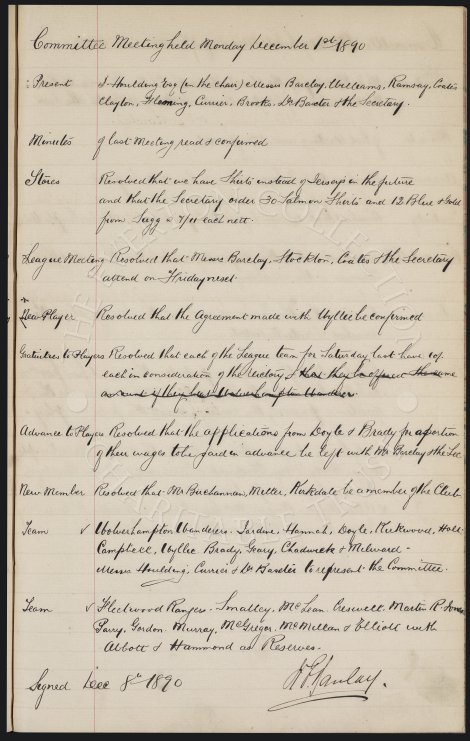 Committee Meeting held Monday December 1st 1890
Present J. Houlding Esq (in the chair) Messrs Barclay, Williams, Ramsay, Coates
Clayton, Fleming, Currier, Brooks, Dr Baxter & the Secretary.
Minutes of last Meeting read & confirmed
Stores Resolved that we have Shirts instead of Jerseys in the future
and that the Secretary order 30 Salmon Shirts and 12 Blue & Gold
from Sugg @ 7/11 each nett.
League Meeting Resolved that Messrs Barclay, Stockton, Coates & the Secretary
attend on Friday next
New Player Resolved that the Agreement made with Wyllie be confirmed
Gratuities to Players Resolved that each of the League team for Saturday last have 10/-
each in consideration of the victory & that they be offered the same
account if they beat Wolverhampton Wanderers
Advance to Players Resolved that the applications from Doyle & Brady for a portion
of their wages to be paid in advance be left with Mr Barclay & the Sec
New Member Resolved that Mr Buchannan, Kirkdale be a member of the Club
Team v Wolverhampton Wanderers. Jardine, Hannah, Doyle, Kirkwood, Holt
Campbell, Wyllie Brady, Geary, Chadwick & Milward -
Messrs Houlding, Currier & Dr Baxter to represent the Committee.
Team v Fleetwood Rangers. Smalley, McLean, Creswell, Martin R. Jones
Parry. Gordon. Murray, McGregor, McMillan & Elliott with
Abbott & Hammond as Reserves.
Signed Dec 8th 1890